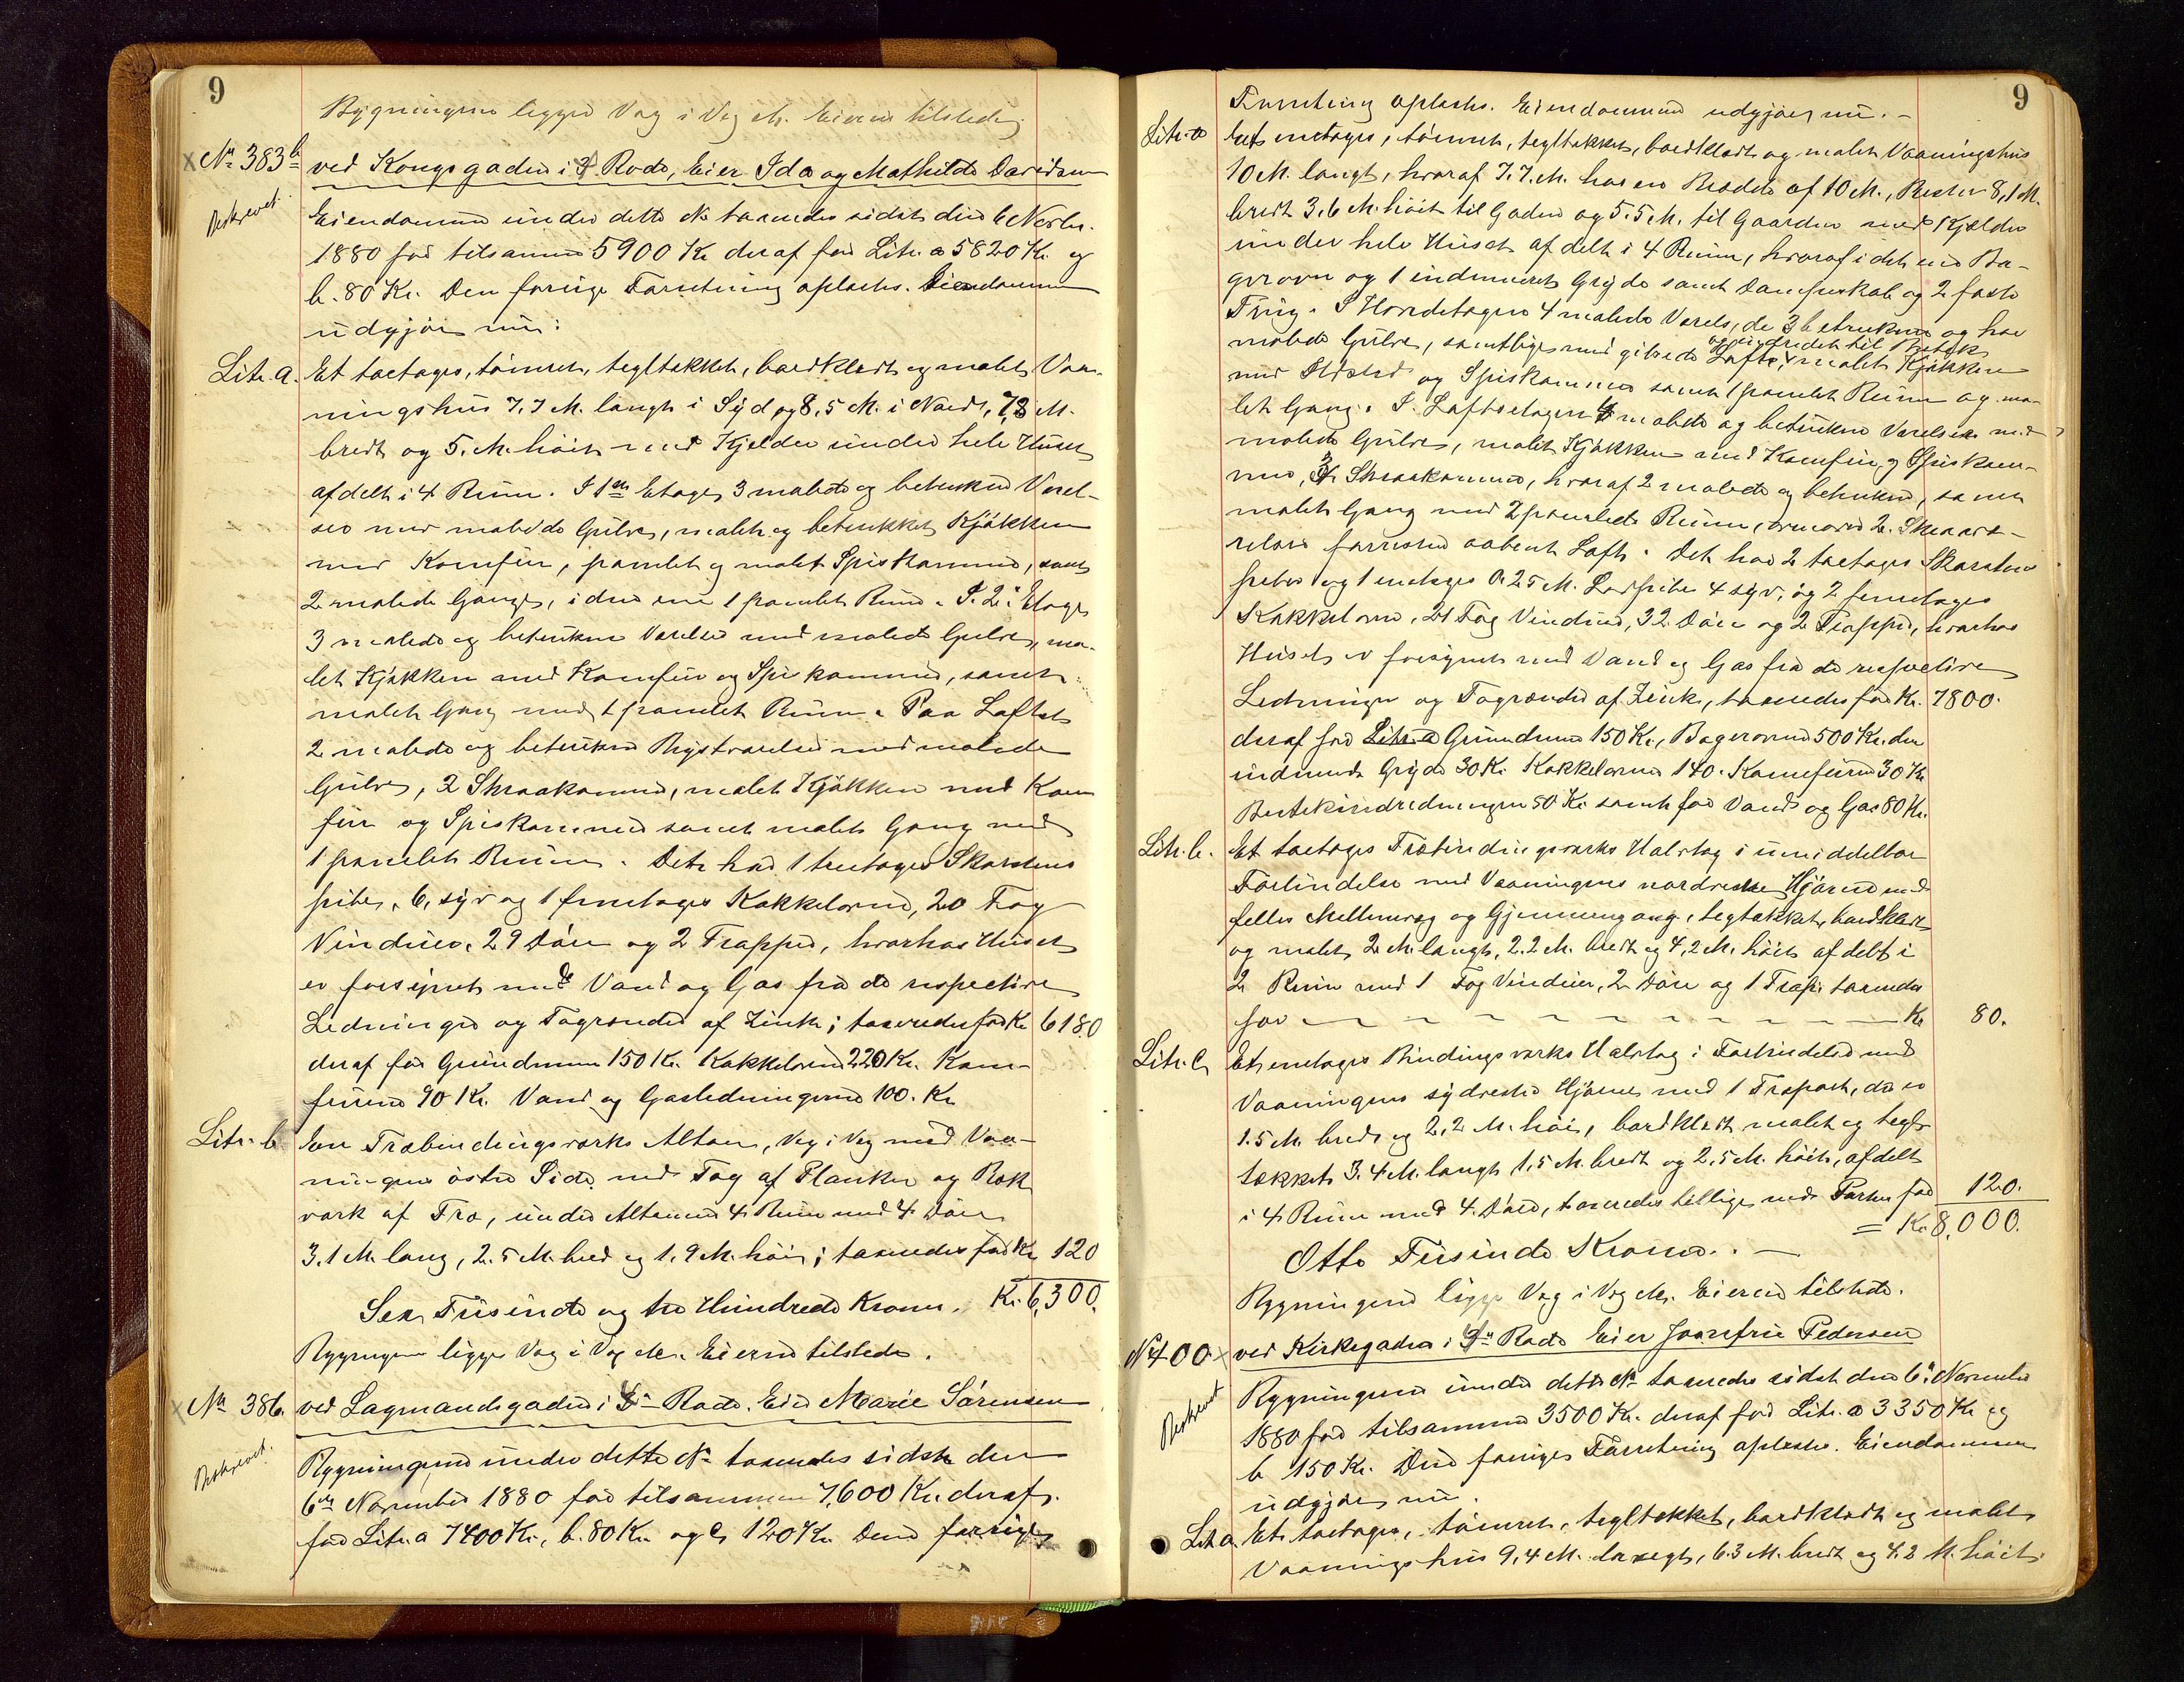 9
Bygningerne ligger Væg i Væg etc. Eieren tilstede.
No 383b ved Kongsgaden i 4 Rode, Eier Ida og Mathilde Davidsen
Beskrevet. Eiendommen under dette No taxeredes sidst den 6 Novbr.
1880 for tilsammen 5900 Kr deraf for Litr. a 5820 Kr. og
b. 80 Kr. Den forrige Forretning oplæstes. Eiendommen
udgjør nu:
Litr. a. Et toetages, tømret, tegltækket, bordklædt og malet Vaa-
ningshus 7,7 M. langt i Syd og 8,5 M. i Nord, 7,8 M.
bredt og 5. M. høit med Kjelder under hele Huset
afdelt i 4 Rum. I 1ste Etage 3 malede og betrukne Værel-
ser med malede Gulve, malet og betrukket Kjøkken
med Komfur, panelet og malet Spiskammer, samt
2 malede Gange, i den ene 1 panelet Rum. I 2den Etage
3 malede og betrukne Værelser med malede Gulve, ma-
let Kjøkken med Komfur og Spiskammer, samt
malet Gang med 1 panelet Rum. Paa Loftet
2 malede og betrukne Kvistværelser med malede
Gulve, 2 Skraakammer, malet Kjøkken med Kom
fur og Spiskammer samt malet Gang med
1 panelet Rum. Det har 1 treetages Skorstens
pibe, 6, syv og 1 fireetages Kakkelovne, 20 Fag
Vinduer, 29 Døre og 2 Trapper, hvorhos Huset
er forsynet med Vand og Gas fra de respective
Ledninger og Tagrender af Zink; taxeredes for Kr 6180
deraf for Grundmur 150 Kr. Kakkelovne 220 Kr. Kom-
furene 90 Kr. Vand og Gasledningerne 100. Kr
Litr. b En Træbindingsværks Altan, Væg i Væg med Vaa-
ningens østre Side, med Tag af Planker og Ræk
værk af Træ, under Altanen 4 Rum med 4 Døre
3,1 M. lang, 2.5 M. bred og 1,9 M. høi; taxeredes for Kr 120
Sex Tusinde og tre Hundrede Kroner. Kr. 6,300.
Bygningen ligger Væg i Væg etc. Eieren tilstede.
No 386. ved Lagmandsgaden i 4de Rode. Eier Marie Sørensen
Beskrevet. Bygningerne under dette No taxeredes sidst den
6te November 1880 for tilsammen 7,600 Kr. deraf
for Litr. a 7400 Kr., b. 80 Kr. og c, 120 Kr. Den forrige
9
Forretning oplæstes. Eiendommen udgjør nu. -
Litr. a Et eetages, tømret, tegltækket, bordklædt og malet Vaaningshus
10 M. langt, hvoraf 7,7. M. har en Bredde af 10 M., Resten 8,1 M.
bredt 3,6 M. høit til Gaden og 5.5 M. til Gaarden med Kjelder
under hele Huset afdelt i 4 Rum, hvoraf i det ene Ba-
gerovn og 1 indmuret Gryde samt Dampskab og 2 faste
Trug. I Hovedetagen 4 malede Værels, de 3 betrukne og har
malede Gulve, samtlige med gibsede Lofte, malet Kjøkken
og indredet til Butik
med Ildsted og Spiskammer samt 1 panelet Rum og ma-
let Gang. I Loftsetagen 4 malede og betrukne Værelser med
malede Gulve, malet Kjøkken med Komfur og Spiskam-
mer, 3 Skraakammer, hvoraf 2 malede og betrukne, samt
malet Gang med 2 panelede Rum, ovenover 2. Skraavæ-
relser forresten aabent Loft. Det har 2 toetages Skorstens
piber og 1 eetages a 25 M. Lodpibe 4 syv, og 2 fireetages
Kakkelovne, 21 Fag Vinduer, 32 Døre og 2 Trapper, hvorhos
Huset er forsynet med Vand og Gas fra de respective
Ledninger og Tagrender af Zink, taxeredes for Kr. 7800.
deraf for Grundmur 150 Kr., Bagerovn 500 Kr. den
indmurede Gryde 30 Kr. Kakkelovne 140. Komfurene 30 Kr
Butikindredningen 50 Kr. samt for Vand og Gas 80 Kr.
Litr. b. Et toetages Træbindingsværks Halvtag i umiddelbar
Forbindelse med Vaaningens nordvestre Hjørne med
fælles Mellemvæg og Gjennemgang, tegltækket, bordklædt
og malet, 2 M. langt, 2.2 M. bredt og 4,2 M. høit afdelt i
2 Rum med 1 Fag Vinduer, 2 Døre og 1 Trap, taxeredes
for Kr 80.
Litr. c, Et eetages Bindingsværks Halvtag i Forbindelse med
Vaaningens sydvestre Hjørne med 1 Træport, der er
1.5 M. bred og 2,2 M. høi, bordklædt malet og tegl-
tækket 3.4 M. langt 1,5 M. bredt og 2,5 M. høit, afdelt
i 4 Rum med 4 Døre, taxeredes tillige med Porten for 120.
= Kr. 8,000.
Otto Tusinde Kroner. -
Bygningerne ligger Væg i Væg etc. Eieren tilstede.
No 400 ved Kirkegaden i 4de Rode Eier Jomfru Pedersen
Beskrevet Bygningerne under dette No taxeredes sidst den 6te November
1880 for tilsammen 3500 Kr. deraf for Litr. a 3350 Kr og
b 150 Kr. Den forrige Forretning oplæstes. Eiendommen
udgjør nu.
Litr a. Et toetages, tømret, tegltækket, bordklædt og malet
Vaaningshus 9,4 M. langt, 6.3 M. bredt og 4.2 M. høit.